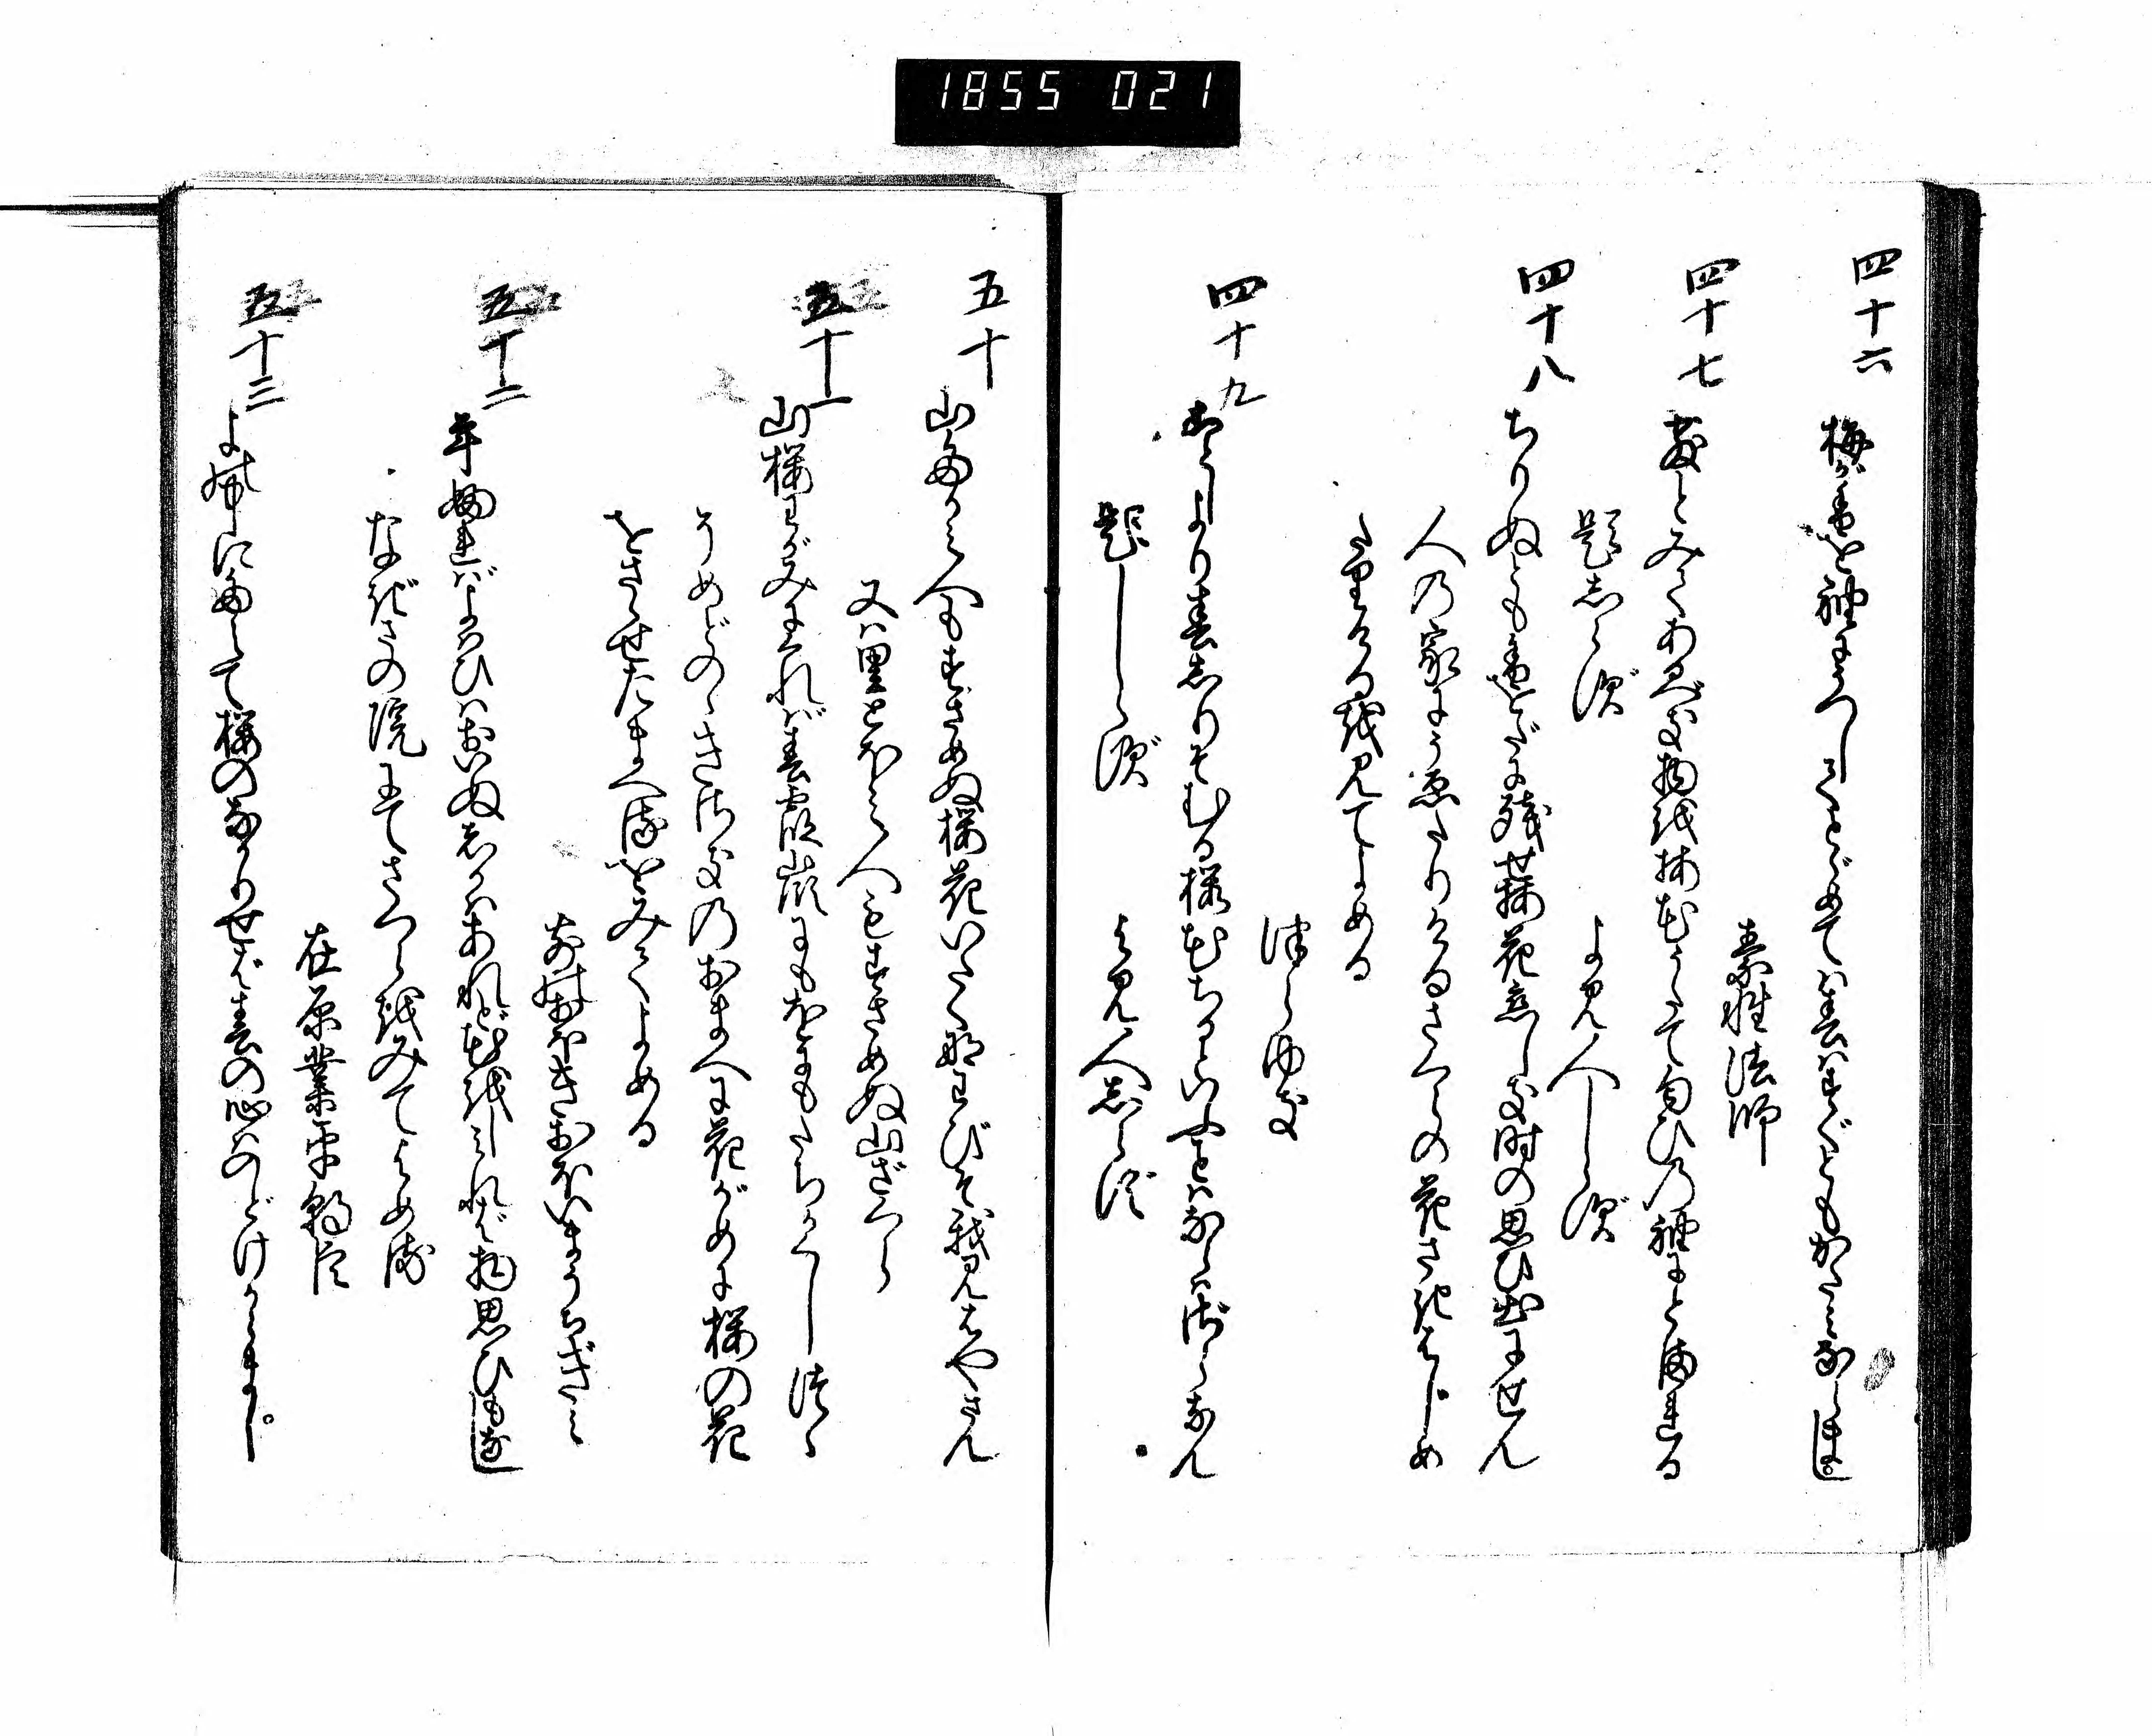 1855 021
四十六
梅が香を袖にうつしてとゞめては春はすぐともかたみならまし
素性法師
四十七
散とみてあるべき物を梅花うたて匂ひの袖にとまれる
題しらず
よみ人しらず
四十八
ちりぬとも香をだに残せ梅花恋しき時の思ひ出にせん
人の家にうゑたりけるさくらの花さきはじめ
たりけるを見てよめる
つらゆき
四十九
ことしより春しりそむる桜花ちるといふことはならはざらなん
題しらず
よみ人しらず
五十
山たかみ人もすさめぬ桜花いたくなわびそ我見はやさん
又は里とほみ人もすさめぬ山ざくら
五十一
山桜わがみにくれば春霞峯にもをにもたちかくしつゝ
そめどのゝきさきのおまへに花がめに桜の花
をさゝせたまへるをみてよめる
さきのおほきおほいまうちぎみ
五十二
年ふればよはひはおいぬしかはあれど花をしみれば物思ひもなし
なぎさの院にてさくらをみてよめる
在原業平朝臣
五十三
よの中にたえて桜のなかりせば春の心はのどけからまし